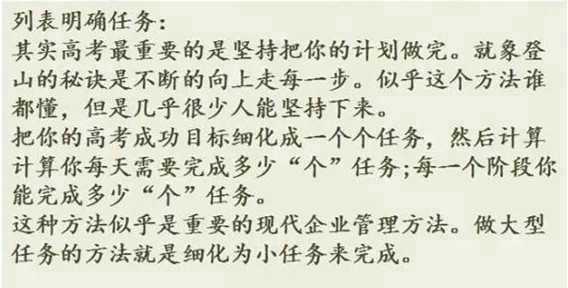 列表明确任务：
其实高考最重要的是坚持把你的计划做完。就象登
山的秘诀是不断的向上走每一步。似乎这个方法谁
都懂，但是几乎很少人能坚持下来。
把你的高考成功目标细化成一个个任务，然后计算
计算你每天需要完成多少“个”任务;每一个阶段你
能完成多少“个”任务。
这种方法似乎是重要的现代企业管理方法。做大型
任务的方法就是细化为小任务来完成。